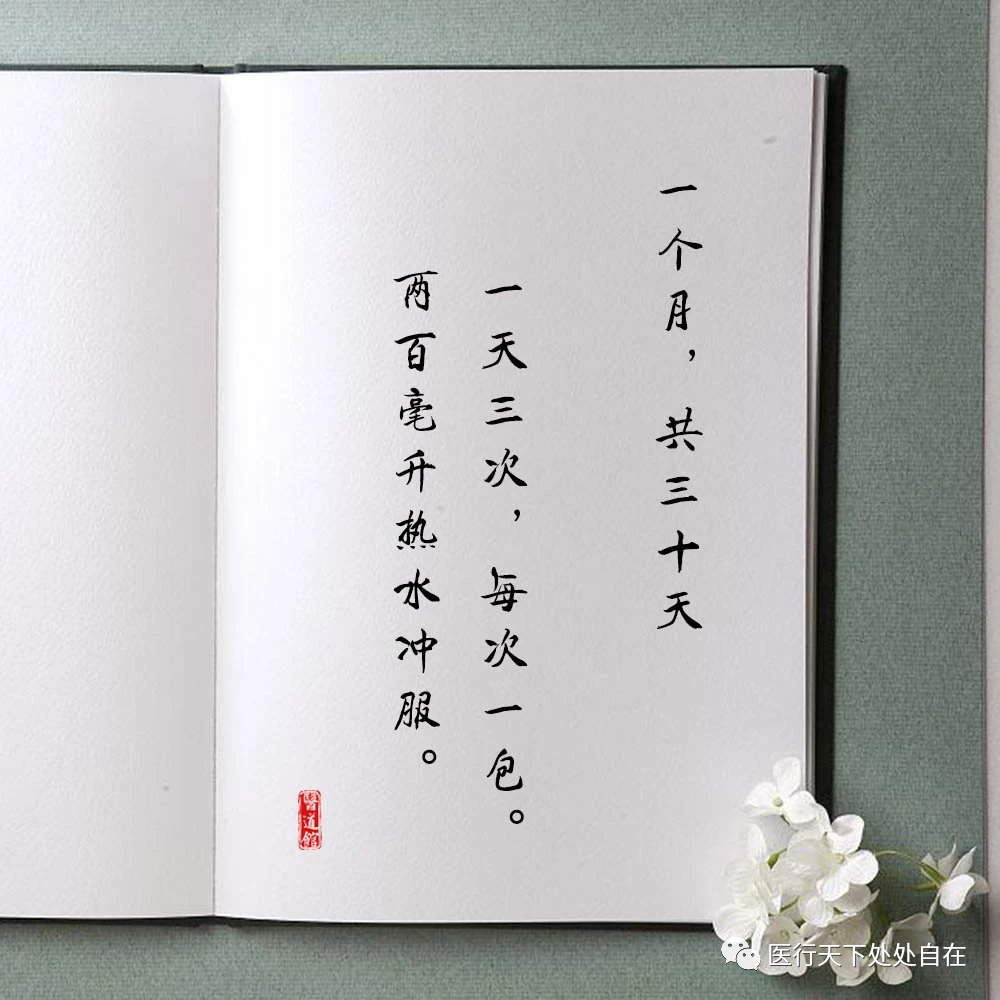 一个月，共三十天
一天三次，每次一包。
两百毫升热水冲服。
醫道館
医行天下处处自在